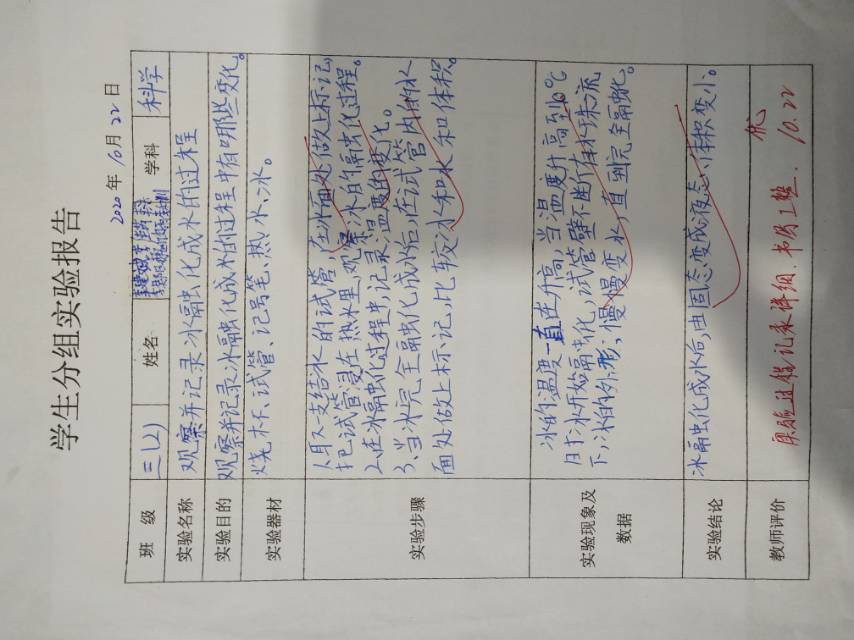 学生分组实验报告
2020 年 10 月 22 日
班 级 三(2) 姓名 学科 科学
实验名称 观察并记录冰融化成水的过程
实验目的 观察并记录冰融化成水的过程中有哪些变化。
实验器材 烧杯、试管、记号笔、热水、冰。
实验步骤
1、取一支结冰的试管,在冰面处做上标记,
把试管浸在热水里,观察冰的融化过程。
2、在冰融化过程中,记录温度的变化。
3、当冰完全融化成水后,在试管内的水
面处做上标记,比较冰和水的体积。
实验现象及
数据
冰的温度一直在升高,当温度升高到0℃
时,冰开始融化,试管壁不断有水珠流
下,冰的外形,慢慢变小,直到完全融化。
实验结论 冰融化成水后,由固态变成液态,体积变小。
教师评价 实验过程记录详细、书写工整. 优
10.22